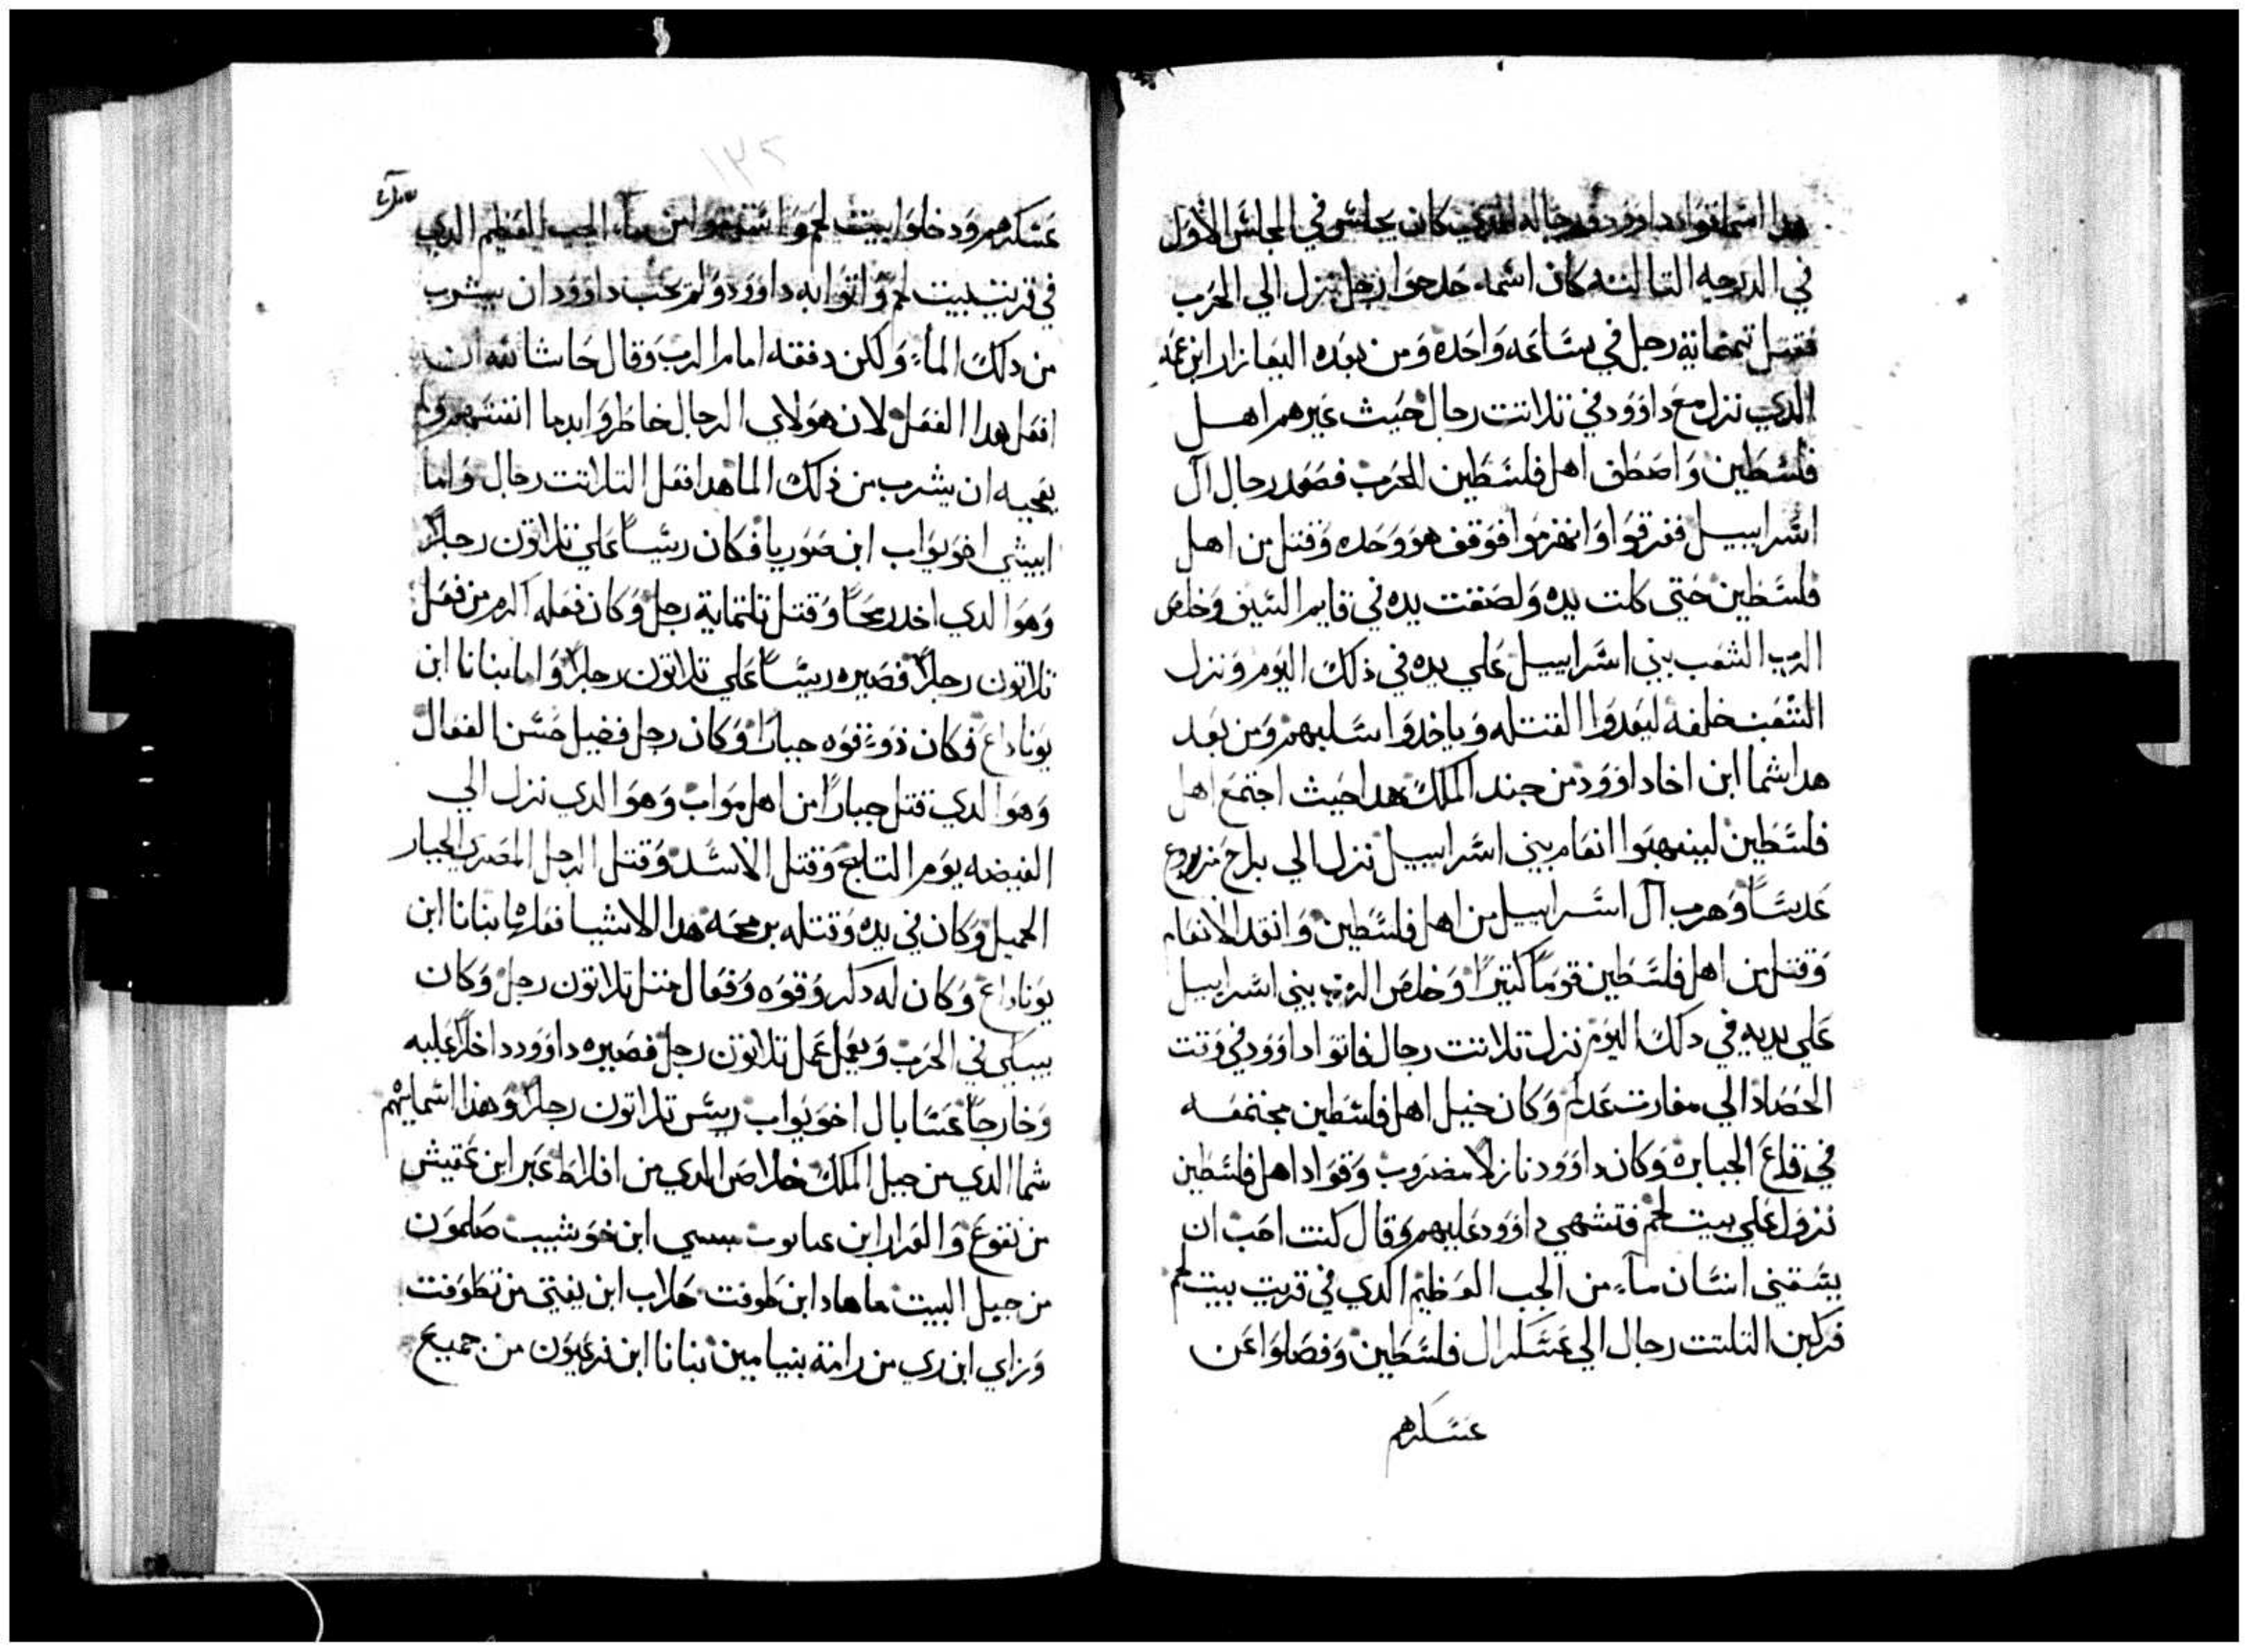 هدا اسما قواد داوود ورجاله الدي كان يجلس في المجلس الاول
في الدرجه التالته كان اسمه حدحوا رجل نزل الي الحرب
فقتل تمنماية رجل في ساعه واحده ومن بعده اليعازار ابن عمه
الدي نزل مع داوود في تلاتت رجال حيث عيرهم اهل
فلسطين واصطف اهل فلسطين للحرب فصعد رجال آل
اسراييل ففرقوا وانهزموا فوقف هو وحده وقتل من اهل
فلسطين حتي كلت يده ولصقت يده في قايم السيف وخلص
الرب الشعب بني اسراييل علي يده في ذلك اليوم ونزل
الشعب خلفه ليعدوا القتله وياخدوا سلبهم ومن بعد
هدا شما ابن اخا داوود من جند الملك هدا حيث اجتمع اهل
فلسطين لينهبوا انعام بني اسراييل نزل الي براح مزروع
عدسا وهرب آل اسراييل من اهل فلسطين وانقد الانعام
وقتل من اهل فلسطين قوما كتيرا وخلص الرب بني اسراييل
علي يديه في دلك اليوم نزل تلاتت رجال فاتوا داوود في وقت
الحصاد الي مغارت عدلم وكان خيل اهل فلسطين مجتمعه
في قلاع الجبابره وكان داوود نازلا مضروب وقواد اهل فلسطين
نزول علي بيت لحم فتشهي داوود عليهم وقال كنت احب ان
يسقني انسان مآء من الجب العظيم الدي في قريت بيت لحم
فركبن التلتت رجال الي عسكر ال فلسطين وفصلوا عن
عسكرهم
عسكرهم ودخلوا بيت لحم واستقوا من مآء الجب العظيم الدي
في قريت بيت لحم واتوا به داوود ولم يحب داوود ان يشرب
من دلك المآء ولكن دفقه امام الرب وقال حاشا لله ان
افعل هدا الفعل لان هولاي الرجال خاطروا بدما انفسهم ولم
يعجبه ان يشرب من ذلك الما هدا فعل التلاتت رجال واما
ابيشي اخو يواب ابن صوريا فكان ريسا علي تلاتون رجلا
وهو الدي اخد رمحا وقتل تلتماية رجل وكان فعله اكرم من فعل
تلاتون رجلا فصيره ريسا علي تلاتون رجلا واما بنانا ابن
يوناداع فكان ذو قوه جبارا وكان رجل فضيل حسن الفعال
وهو الدي قتل جبارا من اهل مواب وهو الدي نزل الي
الغيضه يوم التلج وقتل الاسد وقتل الرجل المصري الجبار
الجميل وكان في يده وقتله برمحه هدا الاشيا فعلها بنانا ابن
يوناداع وكان له دكر وقوه وفعال متل تلاتون رجل وكان
يسكن في الحرب ويعمل عمل تلاتون رجل فصيره داوود داخلا عليه
وخارجا عسابال اخو يواب ريس تلاتون رجلا وهذا اسمايهم
شما الدي من جبل الملك خلاص الدي من افلاط عبر ابن عتيش
من تقوع والعزار ابن عباتوت سسي ابن خوشبيت صلمون
من جبل البيت ماهاد ابن طوفت حلاب ابن يفتي من تطوفت
وزاي ابن ري من رامة بنيامين بنانا ابن نرعيون من جميع